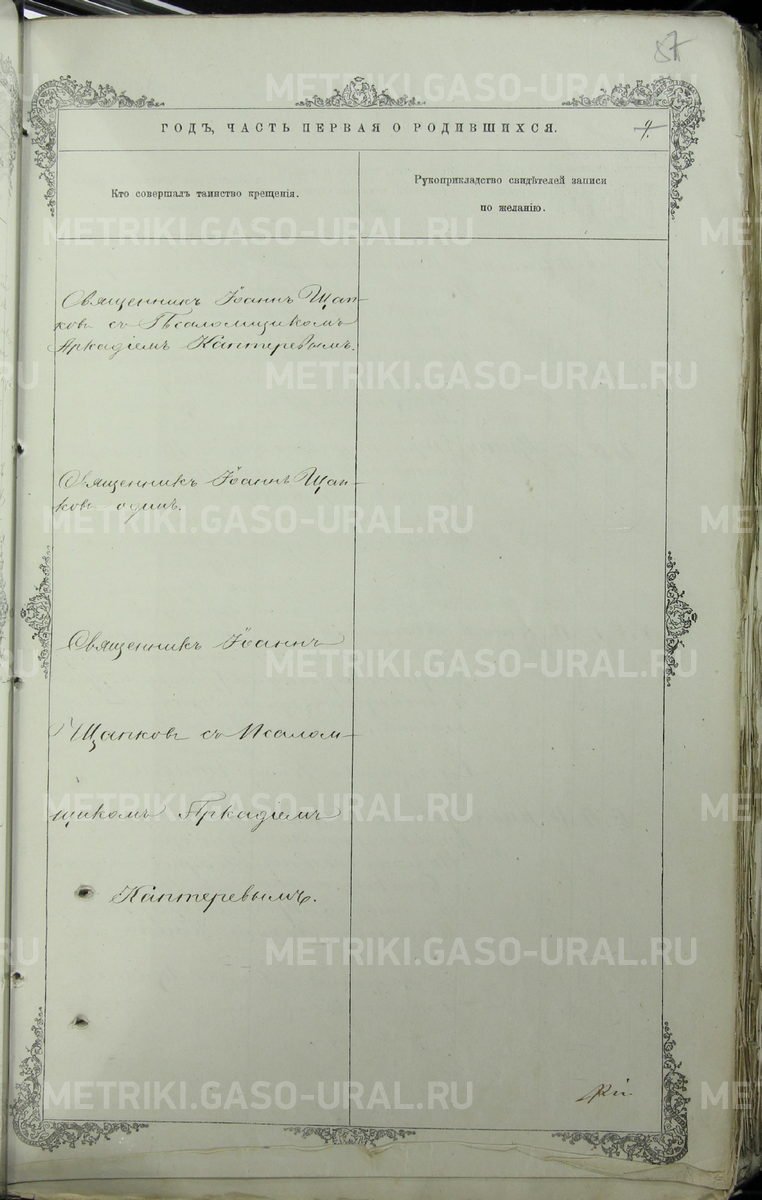 87
ГОДЪ, ЧАСТЬ ПЕРВАЯ О РОДИВШИХСЯ.
Кто совершалъ таинство крещенія.
Рукоприкладство свидѣтелей записи
по желанію.
Священникъ Іоаннъ Щап-
ковъ съ Псаломщикомъ
Аркадіемъ Кантеревымъ.
Священникъ Іоаннъ Щап-
ковъ одинъ.
Священникъ Іоаннъ
Щапковъ съ Псалом-
щикомъ Аркадіемъ
Кантеревымъ.
METRIKI.GASO-URAL.RU